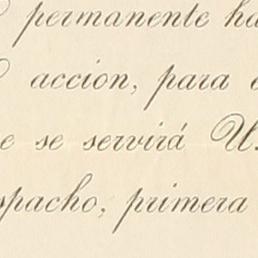 permanente ha
acción, para e
e se servirá U.
spacho, primera